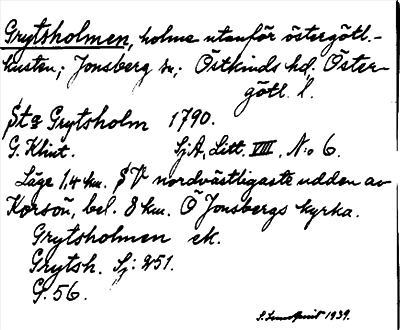 Grytsholmen, holme utanför östergötl.-
kusten; Jonsberg sn; Östkinds hd, Öster-
götl. l.
Sta Grytsholm 1790.
G. Klint. SjA, Litt. VIII, No 6.
Läge 1,4 km. SV nordvästligaste udden av
Korsön, bel. 8 km. Ö Jonsbergs kyrka.
Grytsholmen ek.
Grytsh. Sj: 251.
G. 56.
S. 1939.